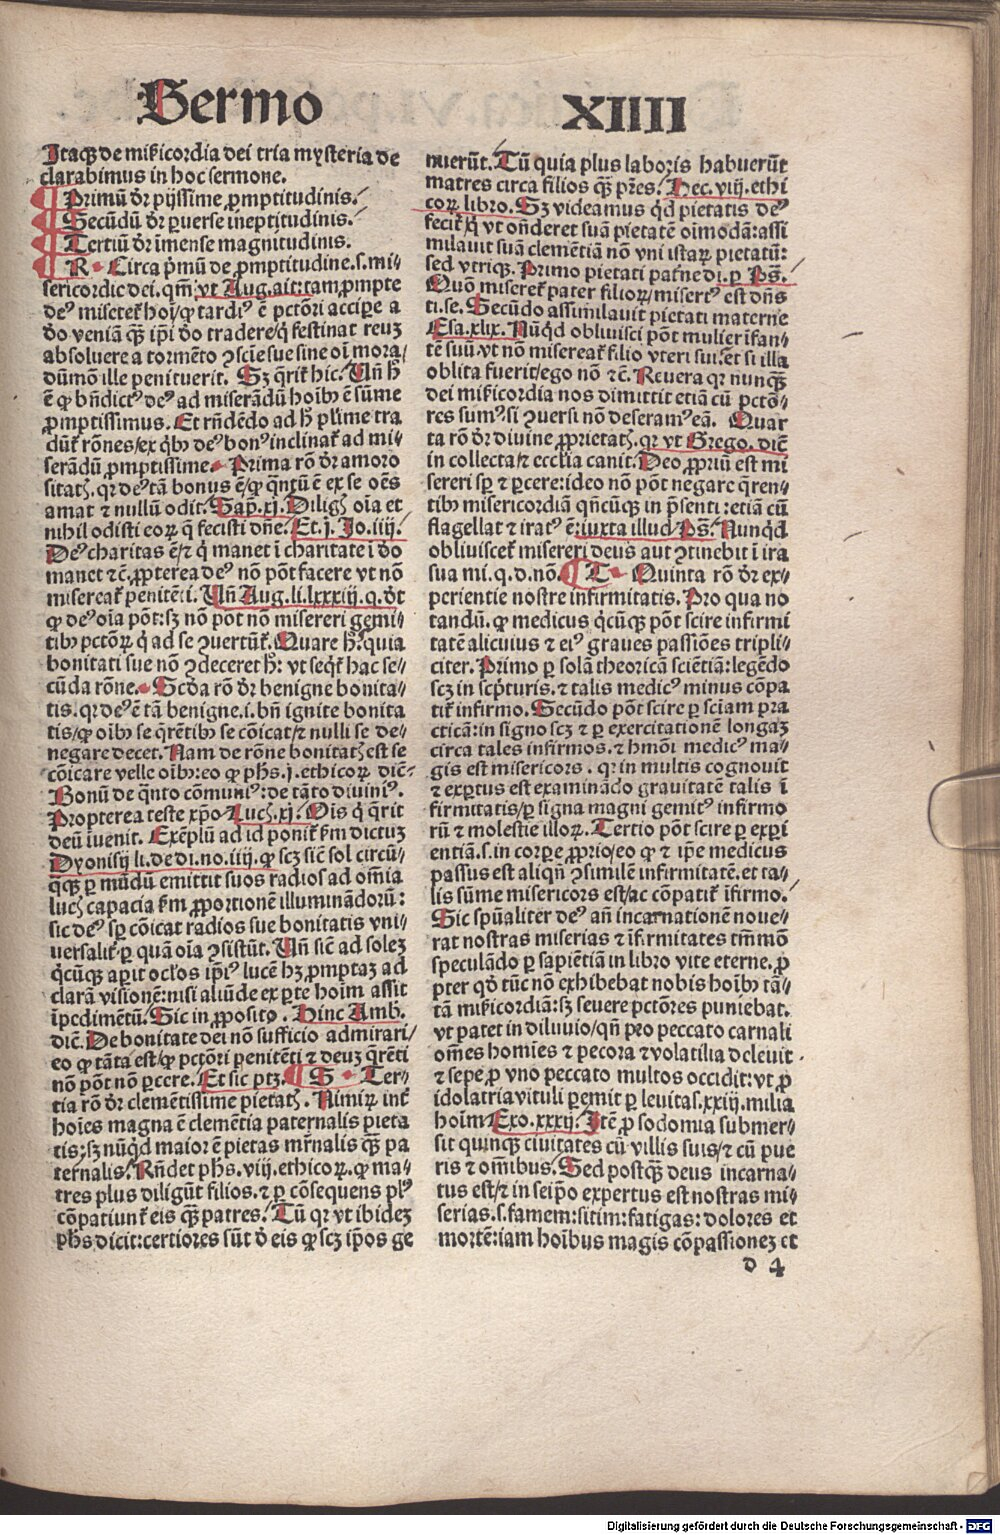 Sermo XIIII
Itaqꝫ de mĩcordia dei tria mysteria de
clarabimus in hoc sermone.
¶ Primũ dr̃ pijssime ꝓmptitudinis.
¶ Secũdũ dr̃ ꝑuerse ineptitudinis.
¶ Tertiũ dr̃ ĩmense magnitudinis.
¶ R. Circa p̃mũ de ꝓmptitudine.s.mi-
sericordie dei. qm̃ vt Aug. ait: tam ꝓmpte
deꝰ miseret᷑ hoĩ/ꝙ tardiꝰ ẽ pctõri accipe a
dõ veniã qꝫ ip̃i dõ tradere/ꝙ festinat reuꝫ
absoluere a tormẽto ꝯsciẽ sue sine oĩ mora/
dũmõ ille penituerit. Sꝫ q̃rit᷑ hic. Vñ hꝫ
ẽ ꝙ bñdictꝰ deꝰ ad miserãdũ hoĩbꝰ ẽ sũme
ꝓmptissimus. Et rñdẽdo ad hꝫ plr̃ime tra
dũt᷑ rõnes/ex q̃bꝰ deꝰ bonꝰ inclinat᷑ ad mi-
serãdũ ꝓmptissime. Prima rõ dr̃ amoro
sitatꝭ. qꝛ deꝰ tã bonus ẽ/ꝙ q̃ntũ ẽ ex se oẽs
amat ⁊ nullũ odit. Sap̃. xj. Diligꝭ oĩa et
nihil odisti eoꝝ q̃ fecisti dñe. Et. j. Jo. iiij.
Deꝰ charitas ẽ/⁊ q̃ manet ĩ charitate ĩ dõ
manet ⁊c̃. ꝓpterea deꝰ nõ põt facere vt nõ
misereat᷑ penitẽti. Vñ Aug. li. lxxxiij. q. dt̃
ꝙ deꝰ oĩa põt: sꝫ nõ põt nõ misereri gemi-
tibꝰ pctõꝝ q̃ ad se ꝯuertũt᷑. Quare hꝫ? quia
bonitati sue nõ ꝯdeceret hꝫ: vt seqt᷑ hac se-
cũda rõne. Scd̃a rõ dr̃ benigne bonita-
tis. qꝛ deꝰ ẽ tã benigne .i. bñ ignite bonita
tis/ꝙ oĩbꝰ se q̃rẽtibꝰ se cõicat/⁊ nulli se de-
negare decet. Nam de rõne bonitatꝭ est se
cõicare velle oĩbꝰ: eo ꝙ phs. j. ethicoꝝ diẽ.
Bonũ de q̃nto cõmuniꝰ: de tãto diuiniꝰ.
Propterea teste xp̃o Lucꝭ. xj. Ois q̃ q̃rit
deũ iuenit. Exẽplũ ad id ponit᷑ ẜm dictuꝫ
Dyonisij li. de di. no. iiij. ꝙ scꝫ sic̃ sol circũ-
qꝫ ꝑ mũdũ emittit suos radios ad om̃ia
lucꝭ capacia ẜm ꝓportionẽ illuminãdoꝝ:
sic deꝰ sp̃ cõicat radios sue bonitatis vni-
uersalit᷑. ꝑ quã oĩa ꝯsistũt. Vñ sic̃ ad soleꝫ
q̃cũqꝫ aꝑit oc̃los ip̃iꝰ lucẽ hꝫ ꝓmptaꝫ ad
clarã visionẽ: nisi aliũde ex ꝑte hoĩm assit
ĩpedimẽtũ. Sic in ꝓposito. Hinc Amb̃.
dic̃. De bonitate dei nõ sufficio admirari/
eo ꝙ tãta est/ꝙ pctõri penitẽti ⁊ deuꝫ q̃rẽti
nõ põt nõ ꝑcere. Et sic ptꝫ. ¶ S. Ter-
tia rõ dr̃ clemẽtissime pietatꝭ. Nimiꝝ int᷑
hoĩes magna ẽ clemẽtia paternalis pieta
tis: sꝫ nũqd̃ maior ẽ pietas mr̃nalis qꝫ pa
ternalis. Rñdet phs. viij. ethicoꝝ. ꝙ ma-
tres plus diligũt filios. ⁊ ꝑ cõsequens plꝰ
cõpatiunt᷑ eis qꝫ patres. Tũ qꝛ vt ibideꝫ
phs dicit: certiores sũt d̃ eis ꝙ scꝫ ip̃os ge
nuerũt. Tũ quia plus laboris habuerũt
matres circa filios qꝫ pr̃es. Hec. viij. ethi
coꝝ libro. Sꝫ videamus qd̃ pietatis deꝰ
fecit᷑/q̃ vt oñderet suã pietatẽ oĩmodã: assi
milauit suã clemẽtiã nõ vni istaꝝ pietatũ:
sed vtriqꝫ. Primo pietati pat̃ne di. ꝑ Ps̃.
Quõ miseret᷑ pater filioꝝ/misertꝰ est dñs
ti. se. Secũdo assimilauit pietati materne
Esa. xlix. Nũqd̃ obliuisci põt mulier ĩfan-
tẽ suũ. vt nõ misereat᷑ filio vteri sui. et si illa
oblita fuerit/ego nõ ⁊c̃. Reuera qꝛ nunqꝫ
dei mĩcordia nos dimittit etiã cũ pctõ-
res sumꝰ/si ꝯuersi nõ deseramꝰ eã. Quar
ta rõ dr̃ diuine ꝓprietatꝭ. qꝛ vt Grego. dic̃
in collecta/⁊ ecclĩa canit. Deo ꝓpriũ est mi
sereri sp̃ ⁊ ꝑcere: ideo nõ põt negare q̃ren-
tibꝰ misericordiã q̃ncũqꝫ in p̃senti: etiã cũ
flagellat ⁊ iratꝰ ẽ: iuxta illud Ps̃. Nunqd̃
obliuiscet᷑ misereri deus aut ꝯtinebit ĩ ira
sua mi. q. d. nõ. ¶ T. Quinta rõ dr̃ ex-
perientie nostre infirmitatis. Pro qua no
tandũ. ꝙ medicus q̃cũqꝫ põt scire infirmi
tatẽ alicuius ⁊ eiꝰ graues passiões tripli-
citer. Primo ꝑ solã theoricã sciẽtiã: legẽdo
scꝫ in scp̃turis. ⁊ talis medicꝰ minus cõpa
tit᷑ infirmo. Secũdo põt scire ꝑ sciam pra
cticã: in signo scꝫ ⁊ ꝑ exercitationẽ longaꝫ
circa tales infirmos. ⁊ hmõi medicꝰ ma-
gis est misericors. qꝛ in multis cognouit
⁊ exꝑtus est examinãdo grauitatẽ talis ĩ
firmitatis/ꝑ signa magni gemitꝰ infirmo
rũ ⁊ molestie illoꝝ. Tertio põt scire ꝑ exꝑi
entiã .s. in corꝑe ꝓprio/eo ꝙ ⁊ ip̃e medicus
passus est aliqñ ꝯsimilẽ infirmitatẽ. et ta-
lis sũme misericors est/ac cõpatit᷑ ĩfirmo.
Sic sp̃ualiter deꝰ añ incarnationẽ noue-
rat nostras miserias ⁊ ĩfirmitates tm̃mõ
speculãdo ꝑ sapiẽtiã in libro vite eterne. ꝓ
pter qd̃ tũc nõ exhibebat nobis hoĩbꝰ tã-
tã mĩcordiã: sꝫ seuere pctõres puniebat.
vt patet in diluuio/qñ pro peccato carnali
om̃es homĩes ⁊ pecora ⁊ volatilia deleuit.
⁊ sepe ꝓ vno peccato multos occidit: vt ꝓ
idolatria vituli ꝑemit ꝑ leuitas. xxiij. milia
hoĩm Exo. xxxij. Itẽ ꝓ sodomia submer-
sit quinqꝫ ciuitates cũ villis suis/⁊ cũ pue
ris ⁊ om̃ibus. Sed postqꝫ deus incarna-
tus est/⁊ in seip̃o expertus est nostras mi-
serias .s. famem: sitim: fatigas: dolores et
mortẽ: iam hoĩbus magis cõpassioneꝫ et
d 4
Digitalisierung gefördert durch die Deutsche Forschungsgemeinschaft - DFG